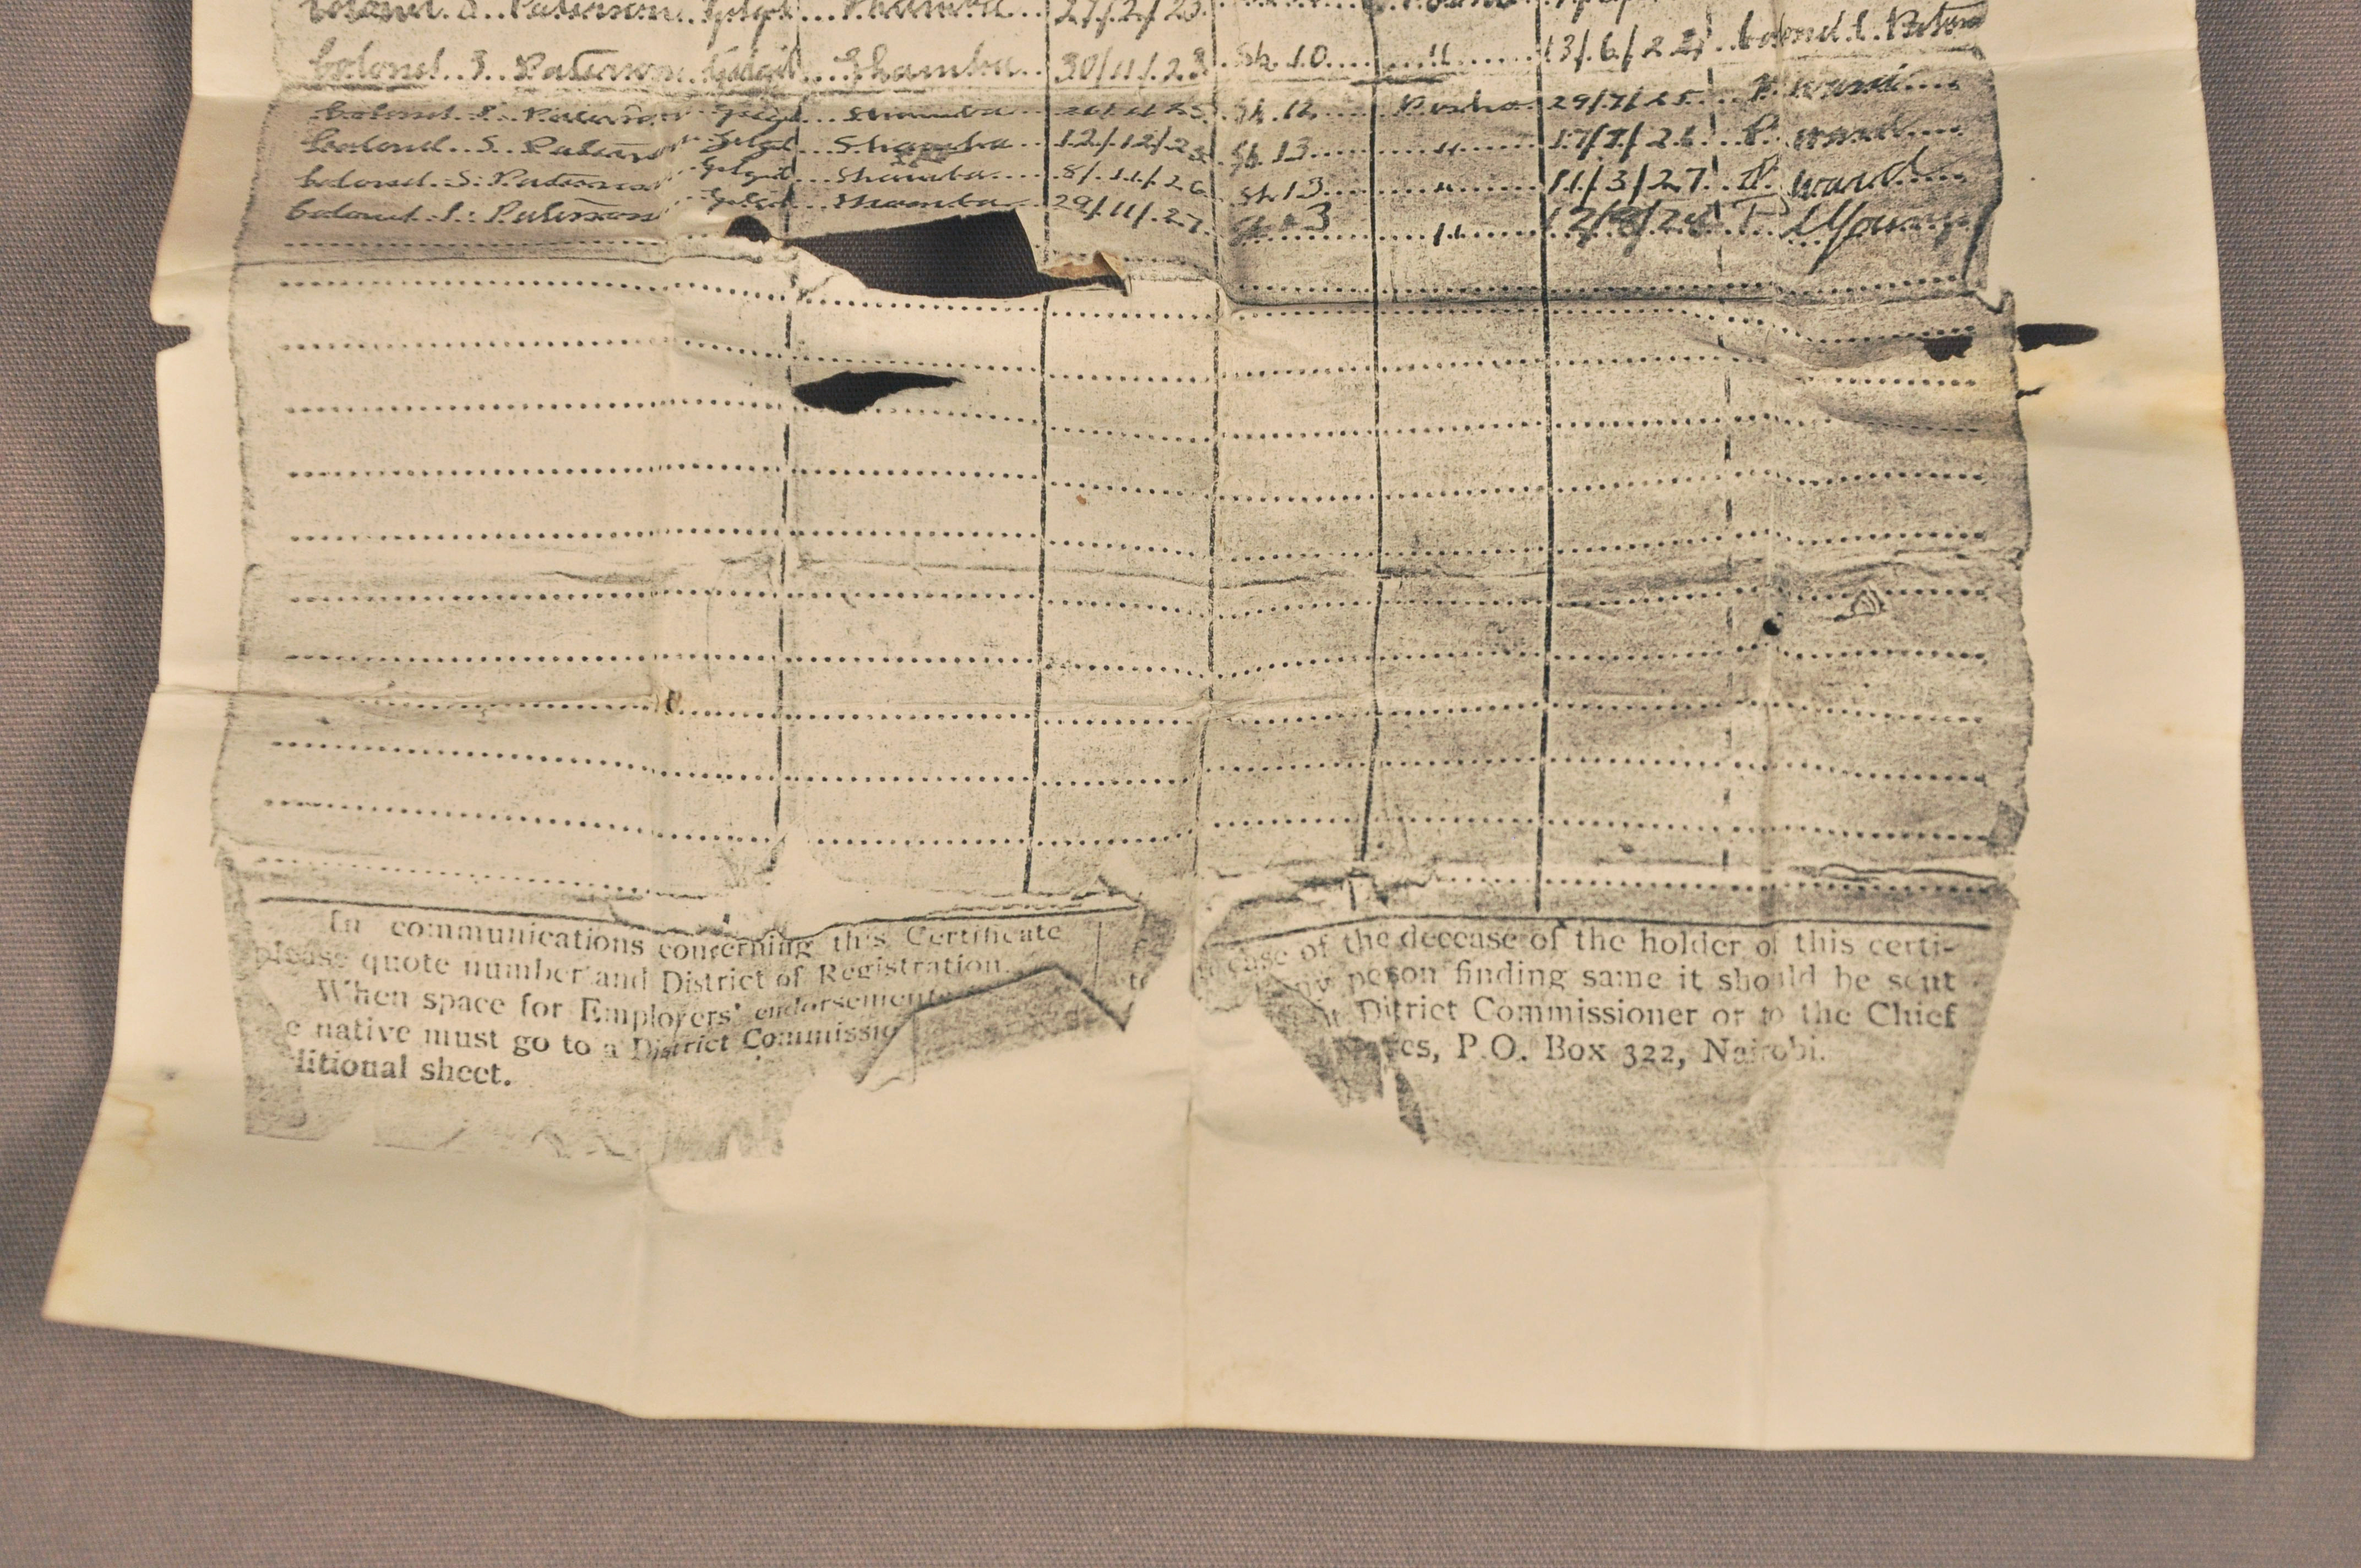 Colonel S. Paterson Gilgil Shamba 27/2/23
Colonel S. Paterson Gilgil Shamba 30/11/23 Sh. 10 " 13/6/2 Colonel S. Paterson
Colonel S. Paterson Gilgil Shamba Sh. 12 Posho 29/7/25 P. Ward
Colonel S. Paterson Gilgil Shamba 12/12/25 Sh. 13 " 17/7/26 P. Ward
Colonel S. Paterson Gilgil Shamba 8/11/26 Sh. 13 " 11/3/27 P. Ward
Colonel S. Paterson Gilgil Shamba 29/11/27 3 "
In communications concerning this Certificate
please quote number and District of Registration.
When space for Employers' endorsements
e native must go to a District Commissio
litional sheet.
case of the decease of the holder of this certi-
ny person finding same it should be sent
District Commissioner or to the Chief
es, P.O. Box 322, Nairobi.